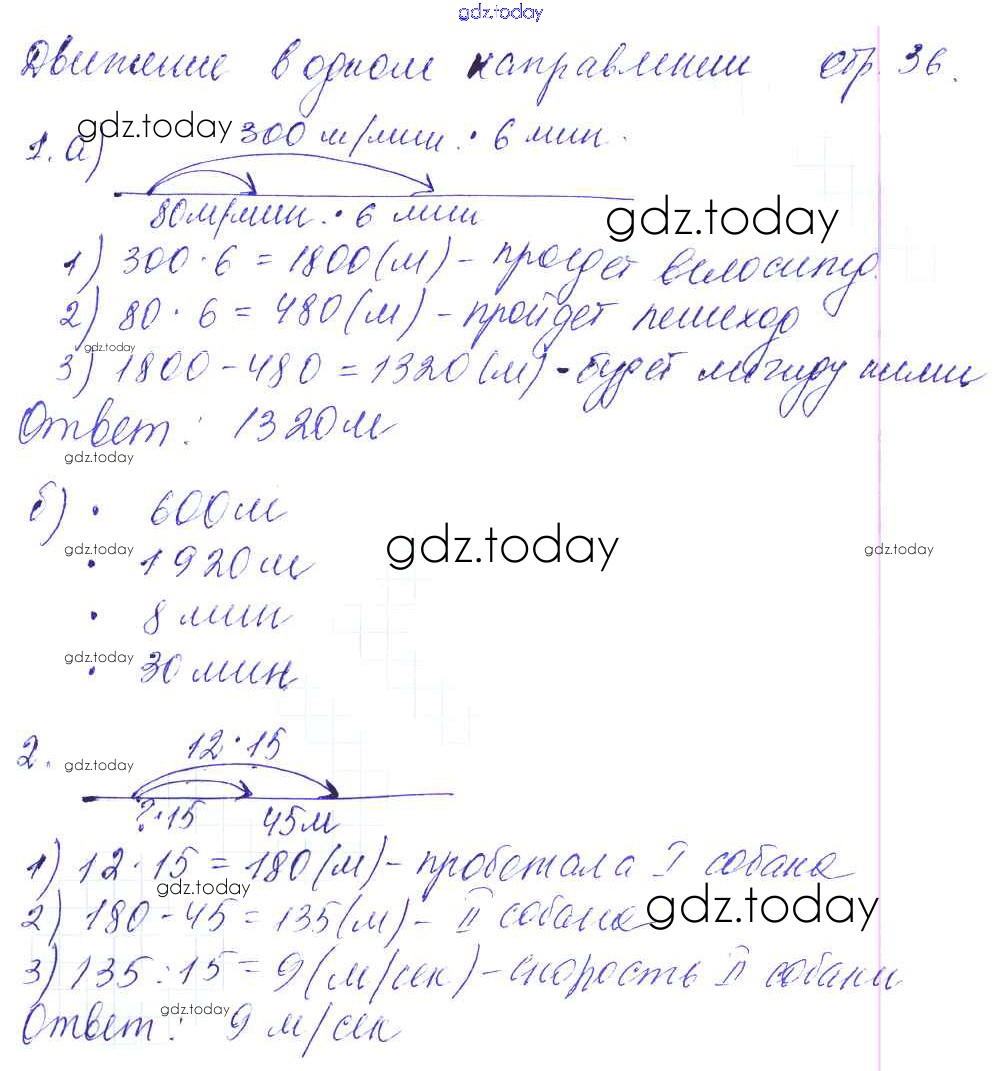 gdz.today
Движение в одном направлении стр. 36.
gdz.today
1. а) 300 м/мин. · 6 мин.
80м/мин. · 6 мин
gdz.today
1) 300 · 6 = 1800 (м) - проедет велосипед.
2) 80 · 6 = 480 (м) - пройдет пешеход
gdz.today
3) 1800 - 480 = 1320 (м) - будет между ними
Ответ: 1320м
gdz.today
б) · 600м
gdz.today
gdz.today
gdz.today
· 1920м
· 8 мин
gdz.today
· 30 мин
2. 12 · 15
gdz.today
? · 15 45м
1) 12 · 15 = 180 (м) - пробежала I собака
gdz.today
2) 180 - 45 = 135 (м) - II собака
gdz.today
3) 135 : 15 = 9 (м/сек) - скорость II собаки
gdz.today
Ответ: 9 м/сек